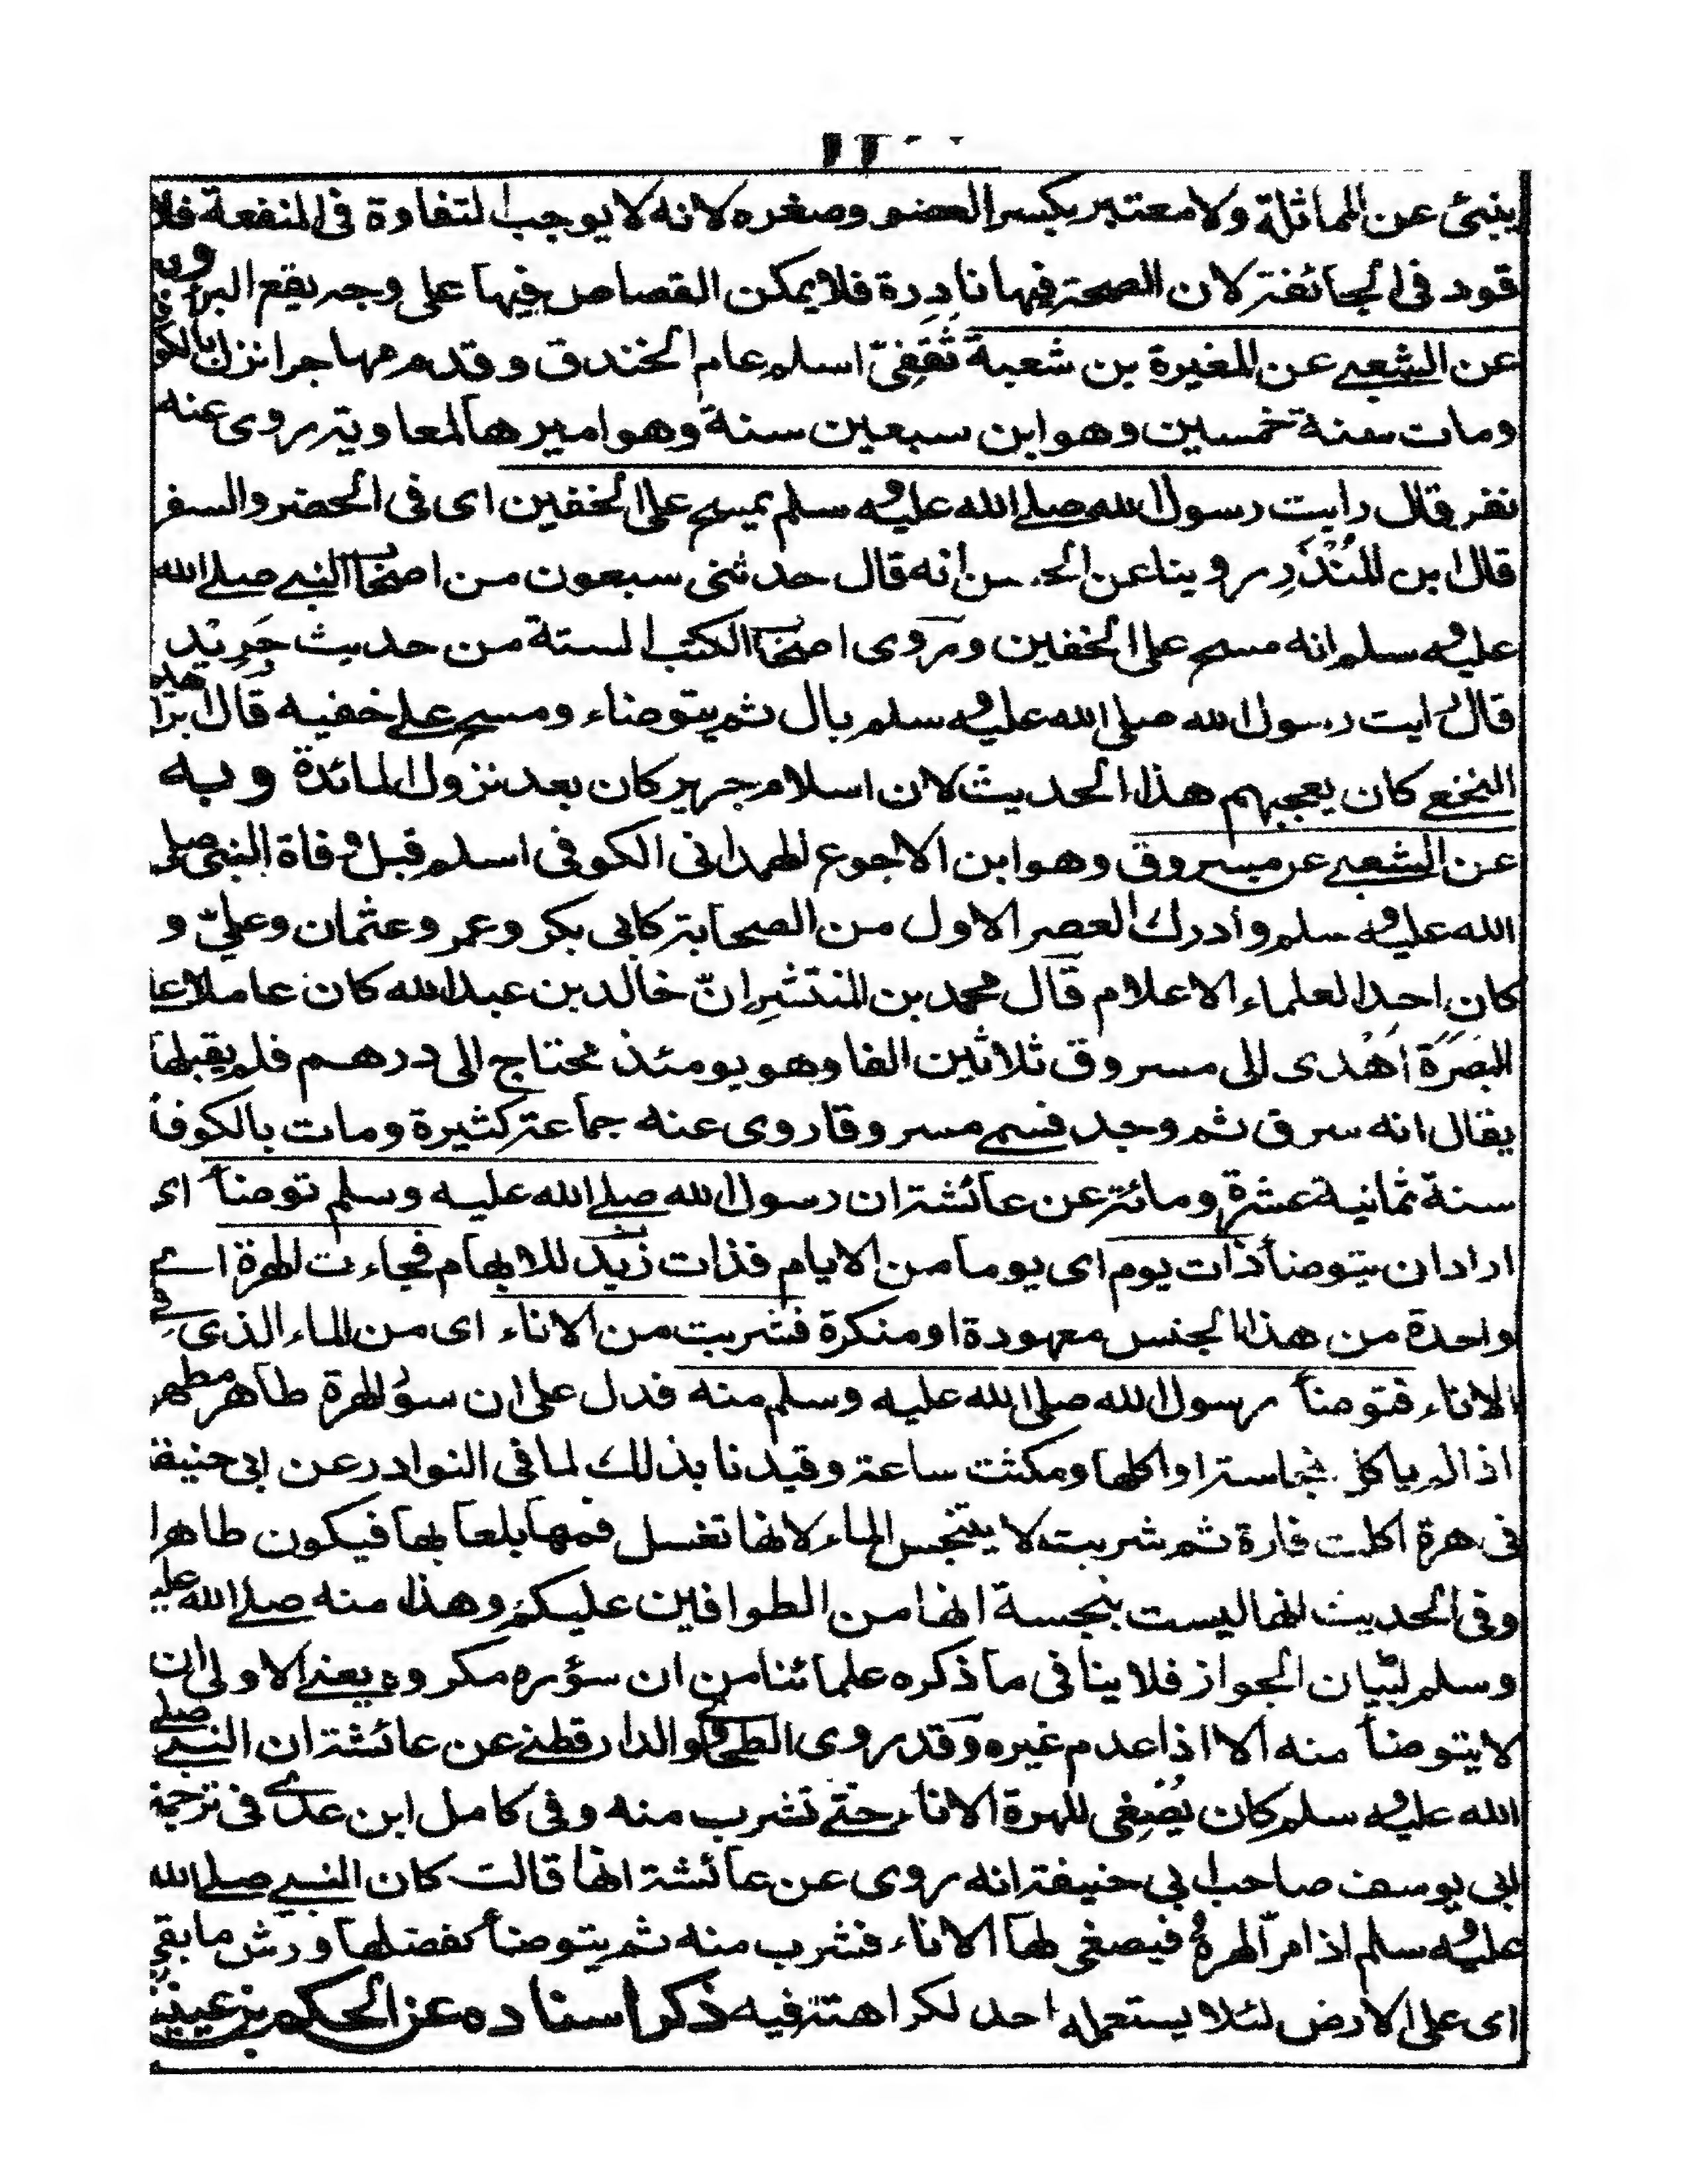 ينبئ عن المماثلة ولا معتبر بكبر العضو وصغره لانه لا يوجب التفاوة فى المنفعة فلا
قود فى الجائفة لان الصحة فيها نادرة فلا يمكن القصاص فيها على وجه يقع البرأ وبه
عن الشعبے عن المغيرة بن شعبة ثَقَفِىّ اسلم عام الخندق وقدم مهاجرا نزل بالكو
ومات سنة خمسين وهو ابن سبعين سنة وهو اميرها لمعاوية روى عنه
نفر قال رايت رسول الله صلے الله عليه وسلم يمسح على الخفين اى فى الحضر والسفر
قال ابن المُنْذِر روينا عن الحسن انه قال حدثنى سبعون من اصحاب النبے صلے الله
عليه وسلم انه مسح على الخفين وروى اصحاب الكتب الستة من حديث جرير
قال رايت رسول الله صلى الله عليه وسلم بال ثم يتوضاء ومسح علے خفيه قال ابراهيم
النخعے كان يعجبهم هذا الحديث لان اسلام جرير كان بعد نزول المائدة وبه
عن الشعبے عن مسروق وهو ابن الاجوع الهمدانى الكوفى اسلم قبل وفاة النبى صلى
الله عليه وسلم وادرك العصر الاول من الصحابة كابى بكر وعمر وعثمان وعلىّ و
كان احد العلماء الاعلام قال محمد بن المنتشر انّ خالد بن عبد الله كان عاملا على
البصرة اَهْدى الى مسروق ثلاثين الفا وهو يومئذ محتاج الى درهم فلم يقبلها
يقال انه سرق ثم وجد فسمے مسروقا روى عنه جماعة كثيرة ومات بالكوفة
سنة ثمانية عشرة ومائة عن عائشة ان رسول الله صلے الله عليه وسلم توضأ اى
اراد ان يتوضأ ذات يوم اى يوما من الايام فذات زيد للابهام فجاءت الهرة اے
واحدة من هذا الجنس معهودة او منكرة فشربت من الاناء اى من الماء الذى فے
الاناء فتوضأ رسول الله صلى الله عليه وسلم منه فدل على ان سؤر الهرة طاهر مطهر
اذا لم ياكل نجاسة او اكلها ومكثت ساعة وقيدنا بذلك لما فى النوادر عن ابى حنيفة
فى هرة اكلت فارة ثم شربت لا يتنجس الماء لانها تغسل فمها بلعابها فيكون طاهرا
وفى الحديث انها ليست بنجسة انها من الطوافين عليكم وهذا منه صلے الله عليه
وسلم لبيان الجواز فلا ينافى ما ذكره علمائنا من ان سؤره مكروه يعنے الاولى ان
لا يتوضأ منه الا اذا عدم غيره وقد روى الطحاوى والدارقطنے عن عائشة ان النبے صلے
الله عليه وسلم كان يُصْغِى للهرة الاناء حتے تشرب منه وفى كامل ابن عدى فى ترجمة
ابى يوسف صاحب ابى حنيفة انه روى عن عائشة انها قالت كان النبے صلے الله
عليه وسلم اذا مرّ الهرة فيصغى لها الاناء فتشرب منه ثم يتوضأ كفضلها ورش ما بقى
اى على الارض لئلا يستعمله احد لكراهته فيه ذكر اسناده عن الحكم بن عيينة